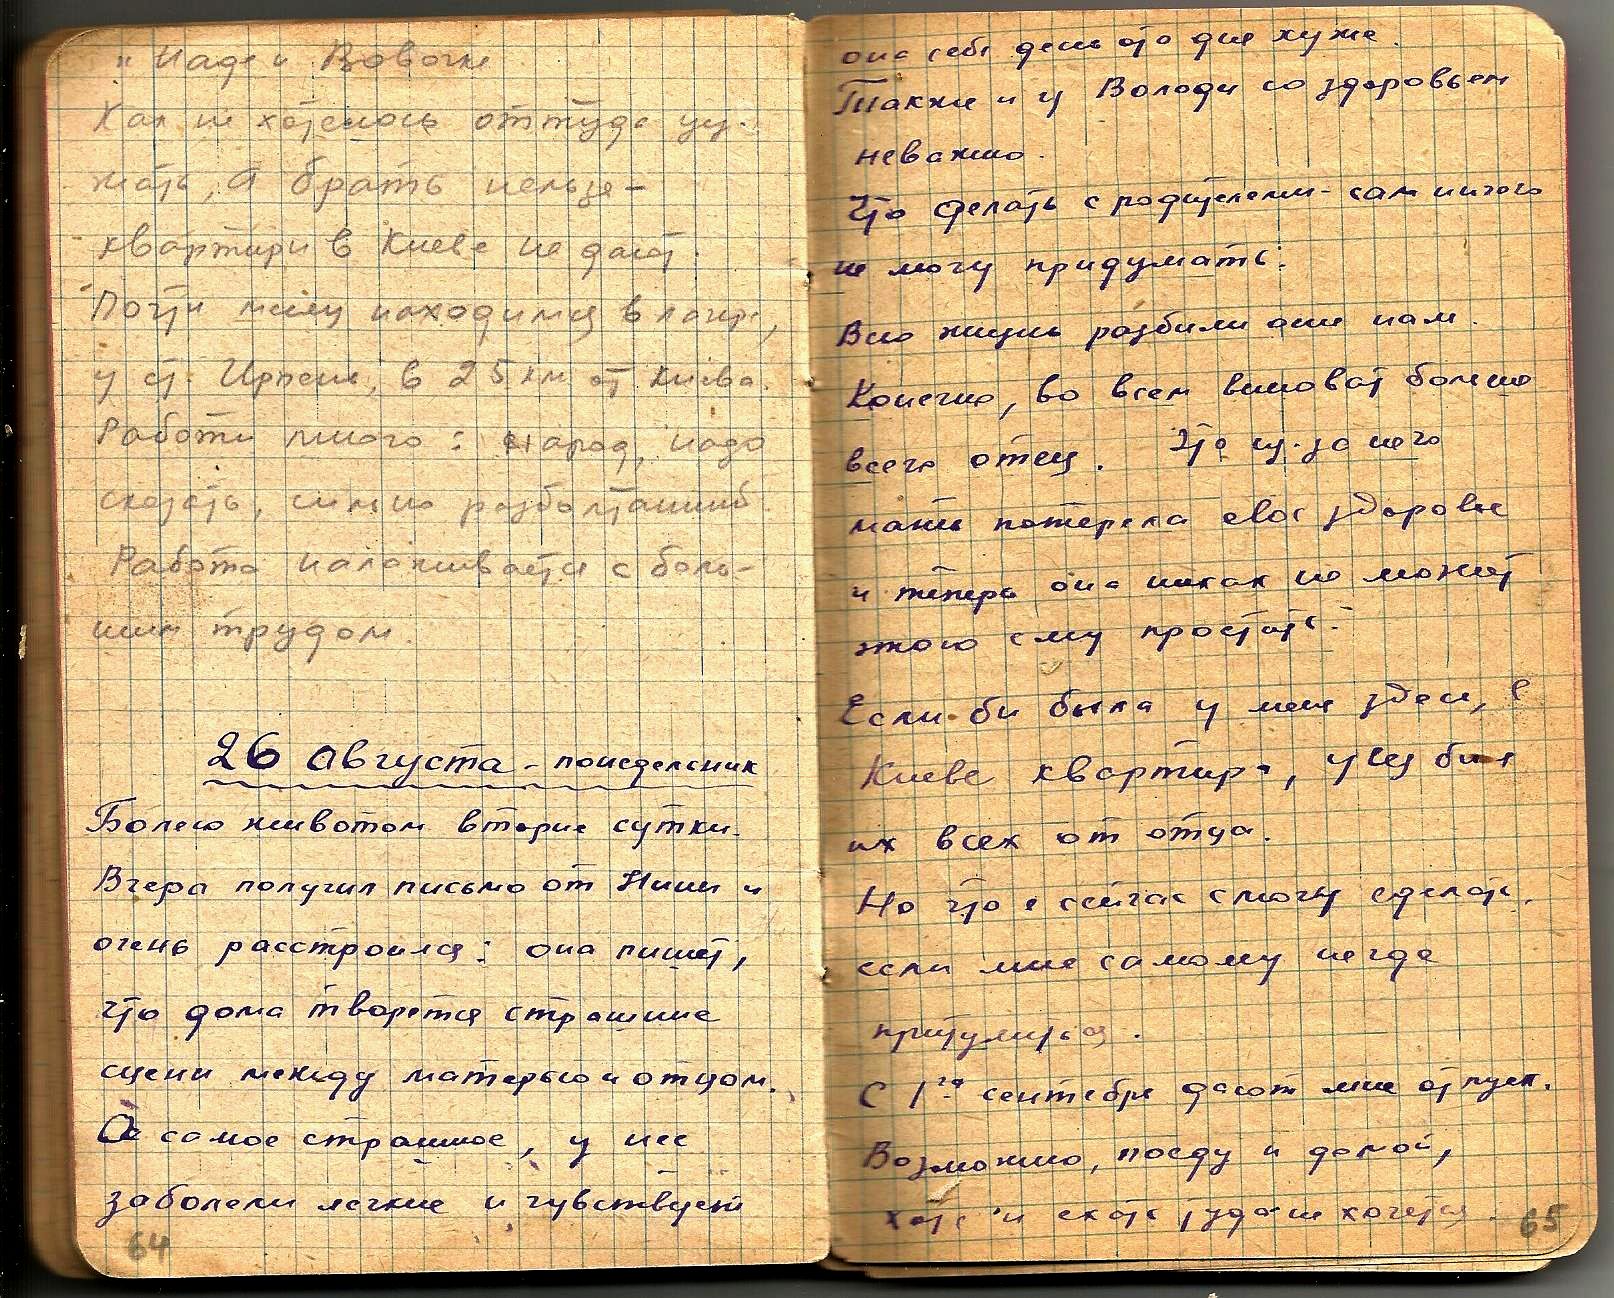 и Наде и Вовочке
Как не хотелось оттуда уез-
жать, а брать нельзя -
квартири в Киеве не дают.
Почти месяц находимся в лагере,
у ст. Ирпень, в 25 км от Киева.
Работи много: народ, надо
сказать, сильно разболтанний.
Работа налаживается с боль-
шим трудом.
26 августа - понедельник
Болею животом вторие сутки.
Вчера получил письмо от Нини и
очень расстроился: она пишет,
что дома творятся страшние
сцени между матерью и отцом.
А самое страшное, у нее
заболели легкие и чувствует
64
она себя день ото дня хуже.
Также и у Володи со здоровьем
неважно.
Что делать с родителями - сам ничего
не могу придумать.
Всю жизнь разбили они нам.
Конечно, во всем виноват больше
всего отец. Что из-за него
мать потеряла свое здоровье
и теперь она никак не может
этого ему простить.
Если би была у меня здесь, в
Киеве квартира, увез бил
их всех от отца.
Но что я сейчас смогу сделать,
если мне самому негде
притулиться.
С 1го сентября дают мне отпуск.
Возможно, поеду и домой,
хотя и ехать туда не хочется.
65